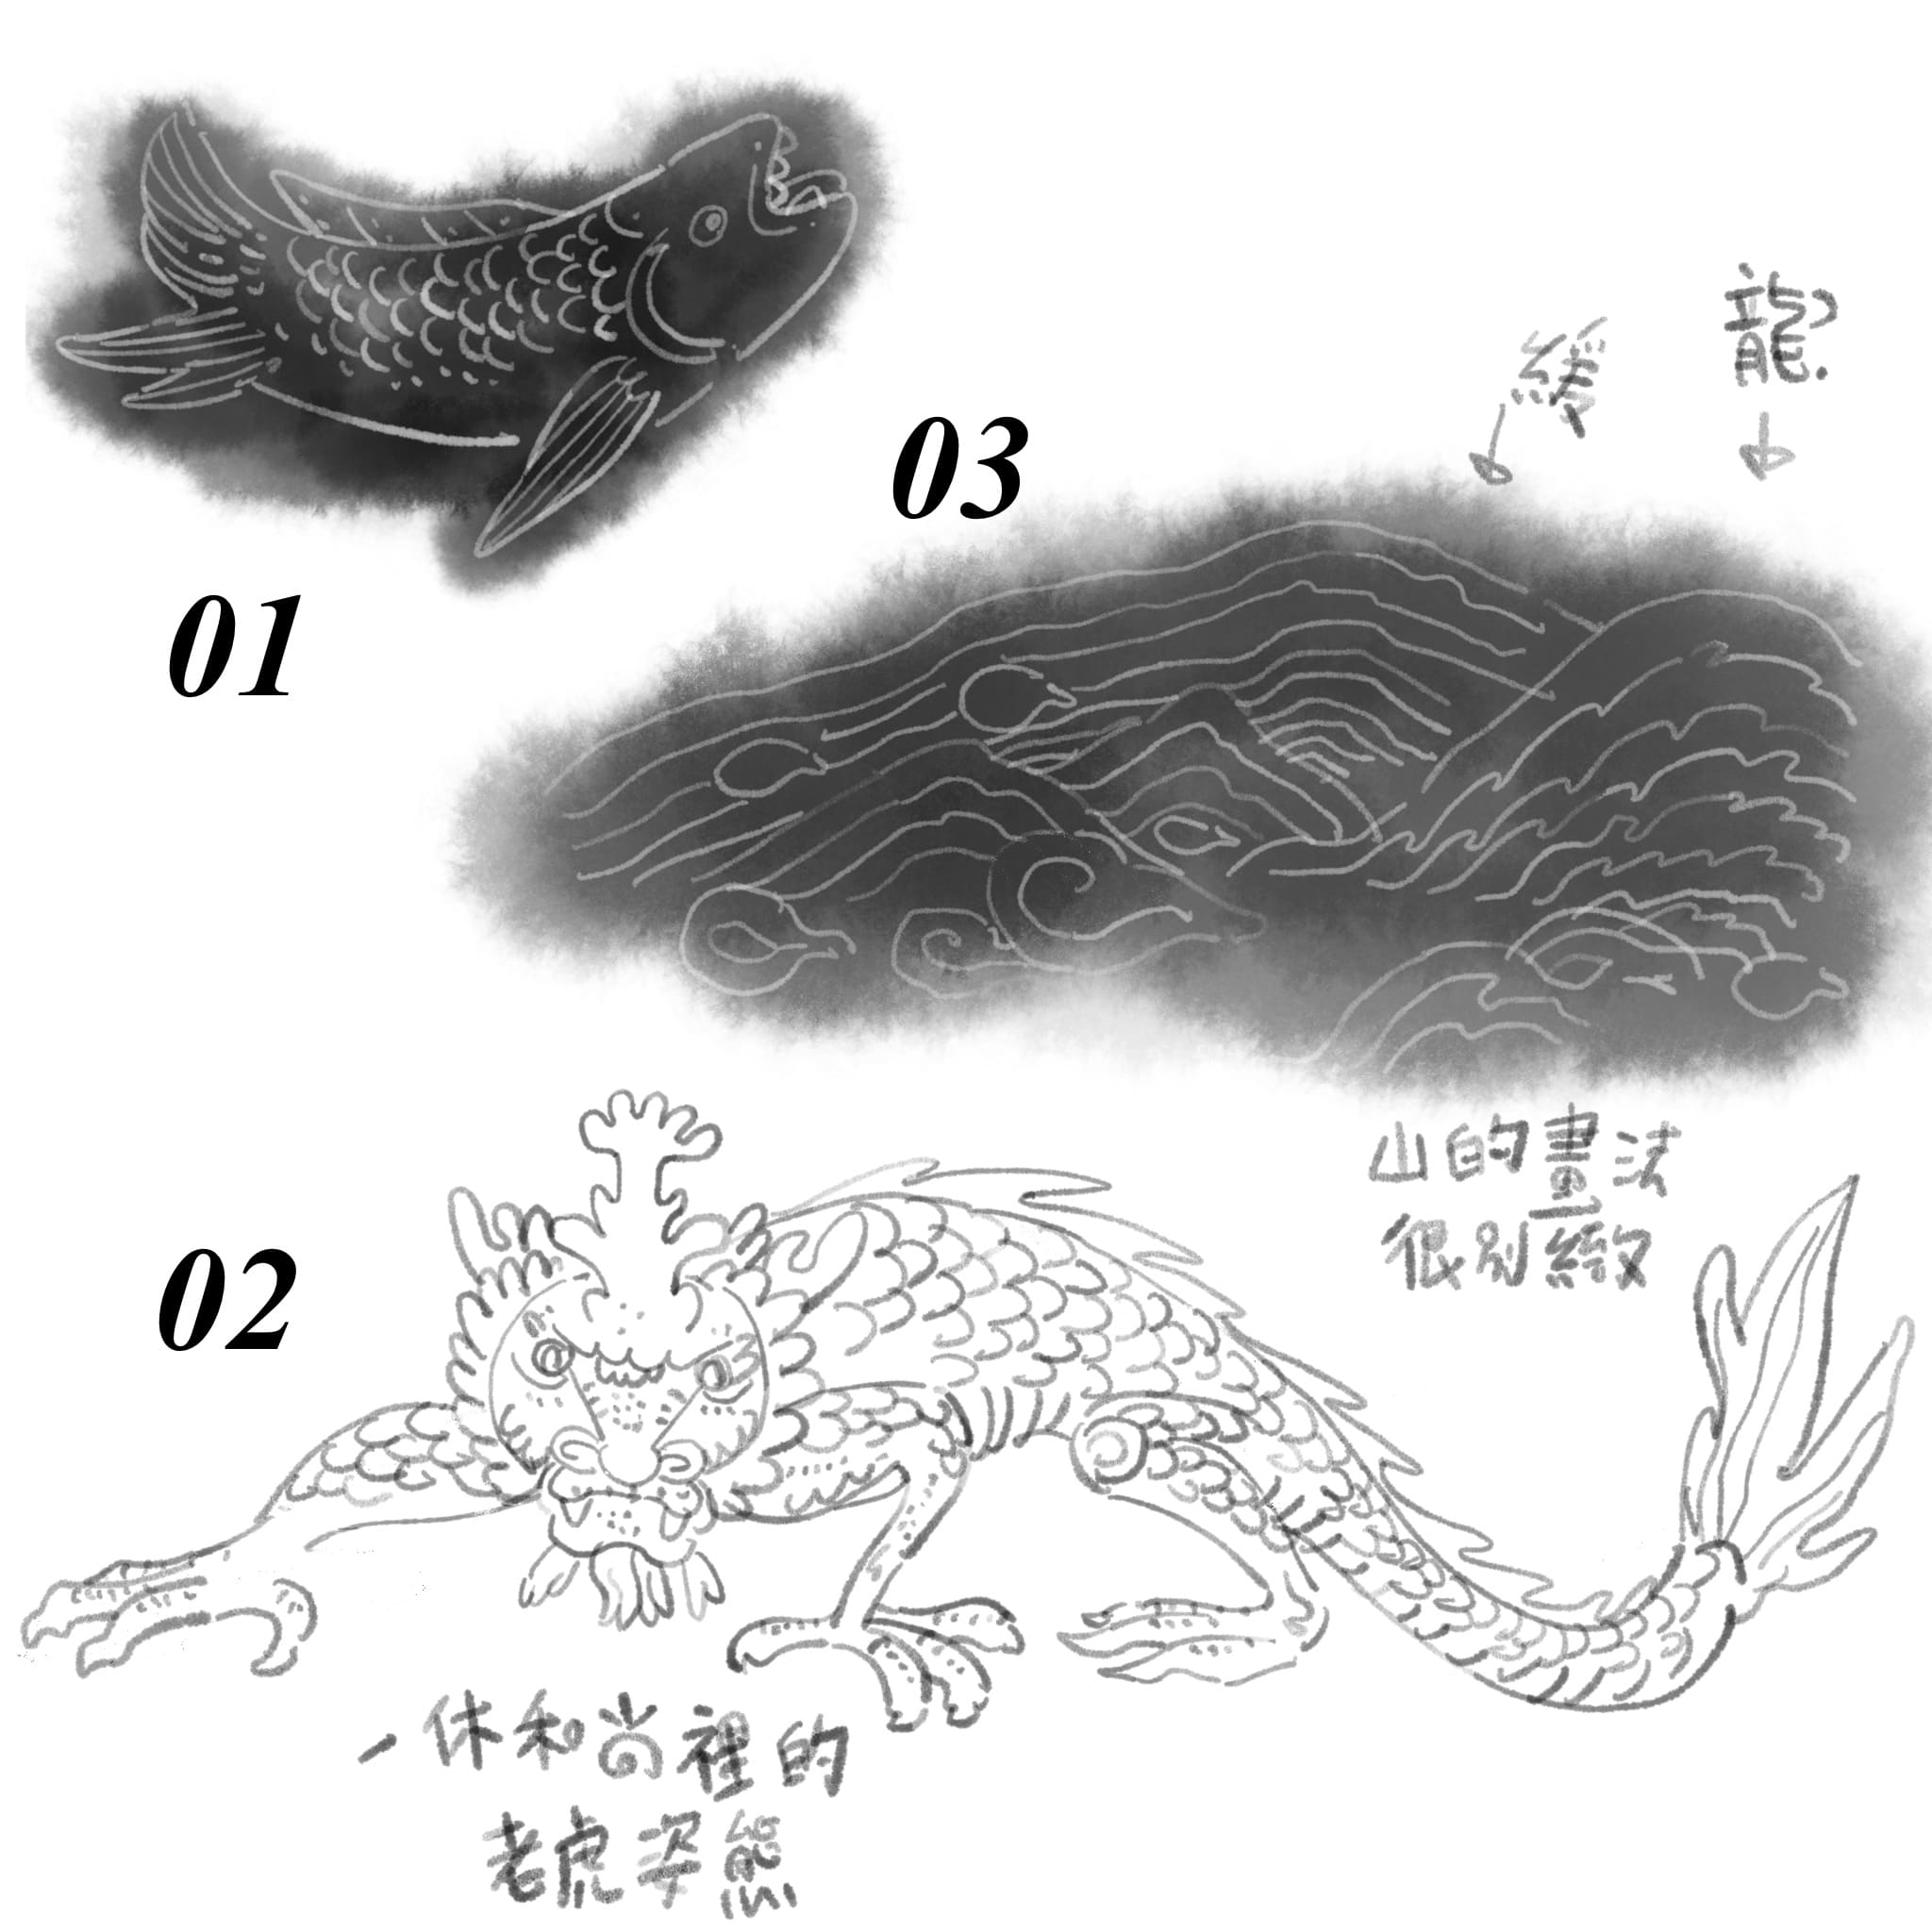 01
03
緩
龍?
山的畫法
很別緻
02
一休和尚裡的
老虎姿態